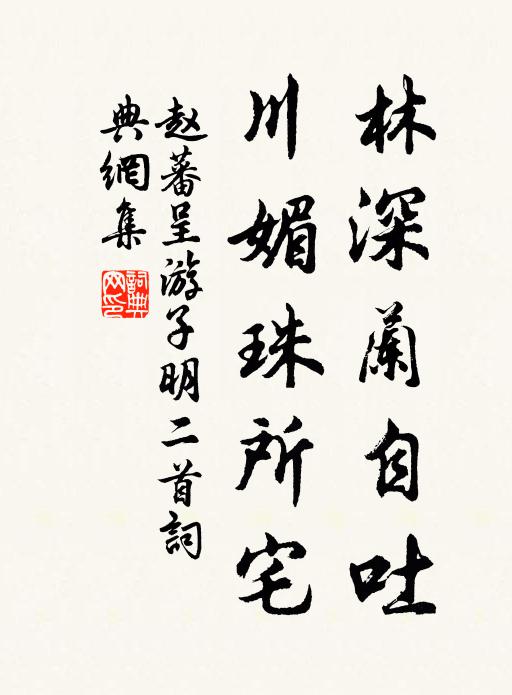 林深蘭自吐
川媚珠所宅
赵蕃呈游子明二首詞
典網集
詞典
网印